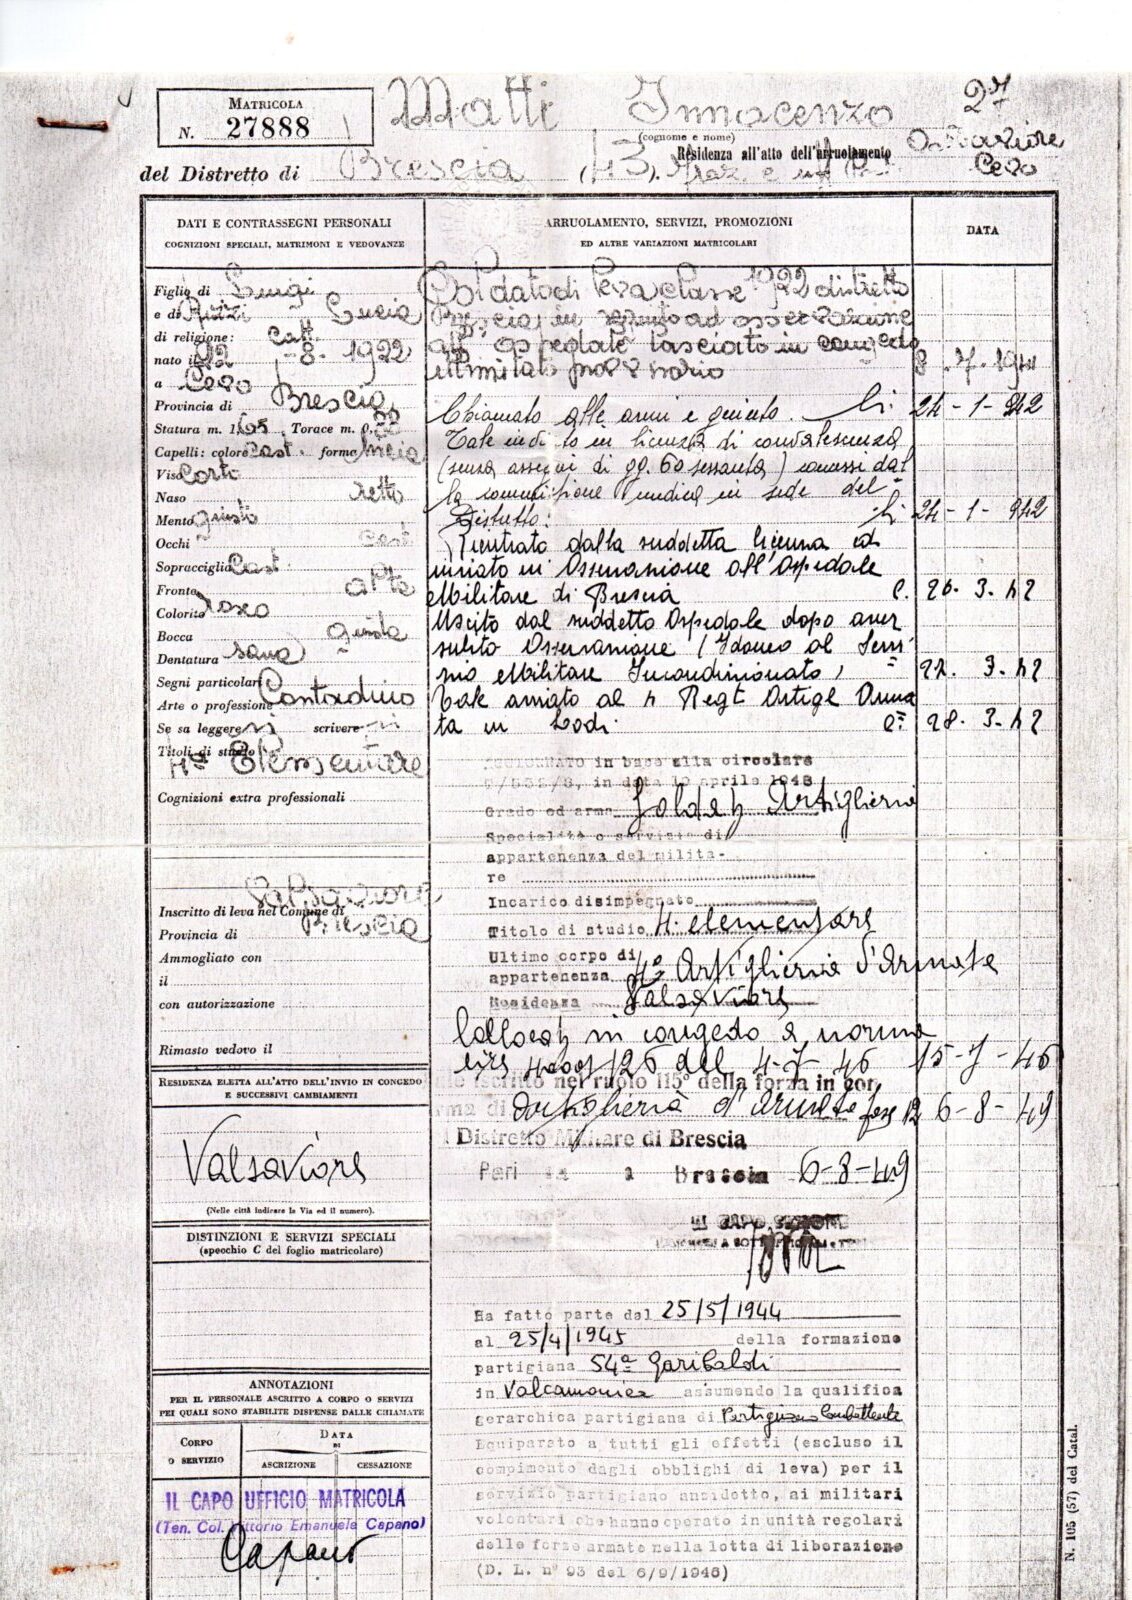 MATRICOLA
N. 27888
Matti Innocenzo 27
(cognome e nome)
Residenza all'atto dell'arruolamento
Cevo
del Distretto di Brescia (43).
DATI E CONTRASSEGNI PERSONALI
COGNIZIONI SPECIALI, MATRIMONI E VEDOVANZE
Figlio di Luigi
e di Lucia
di religione: Catt
nato il 22-8-1922
a Cevo
Provincia di Brescia
Statura m. 1,65 Torace m. 0,
Capelli: colore Cast. forma liscia
Viso Corto
Naso retto
Mento giusto
Occhi Cast
Sopracciglia Cast
Fronte alta
Colorito roseo
Bocca giusta
Dentatura sana
Segni particolari
Arte o professione Contadino
Se sa leggere si scrivere si
Titoli di studio 4ª Elementare
Cognizioni extra professionali
Inscritto di leva nel Comune di Valsaviore
Provincia di Brescia
Ammogliato con
il
con autorizzazione
Rimasto vedovo il
RESIDENZA ELETTA ALL'ATTO DELL'INVIO IN CONGEDO
E SUCCESSIVI CAMBIAMENTI
Valsaviore
(Nelle città indicare la Via ed il numero).
DISTINZIONI E SERVIZI SPECIALI
(specchio C del foglio matricolare)
ANNOTAZIONI
PER IL PERSONALE ASCRITTO A CORPO O SERVIZI
PEI QUALI SONO STABILITE DISPENSE DALLE CHIAMATE
CORPO
O SERVIZIO
DATA
DI
ASCRIZIONE CESSAZIONE
IL CAPO UFFICIO MATRICOLA
(Ten. Col. Vittorio Emanuele Capano)
Capano
ARRUOLAMENTO, SERVIZI, PROMOZIONI
ED ALTRE VARIAZIONI MATRICOLARI
DATA
Soldato di leva classe 1922 distretto
Brescia in seguito ad osservazione
all'ospedale lasciato in congedo
illimitato provvisorio 8.7.1941
Chiamato alle armi e giunto. li 24-1-942
Tale inviato in licenza di convalescenza
(senza assegni di gg. 60 sessanta) concessi dal
la commissione medica in sede del
Distretto: li 24-1-942
Rientrato dalla suddetta licenza ed
inviato in Osservazione all'Ospedale
Militare di Brescia 26.3.42
Uscito dal suddetto Ospedale dopo aver
subito Osservazione (Idoneo al Servi
zio Militare Incondizionato) 27.3.42
Tale inviato al 4 Regt Artigl Arma
ta in Lodi 28.3.42
AGGIORNATO in base alla circolare
in data 10 aprile 1948
Grado ed arma Soldato Artiglieria
Specialità o servizio di
appartenenza del milita-
re
Incarico disimpegnato
Titolo di studio 4ª elementare
Ultimo corpo di
appartenenza 4° Artiglieria d'Armata
Residenza Valsaviore
Collocato in congedo a norma
circ 126 del 4-7-46 15-7-46
iscritto nel ruolo 115° della forza in con
ma di artiglieria d'Armata 6-8-49
Distretto Militare di Brescia
Brescia 6-8-49
IL CAPO SEZIONE
Ha fatto parte dal 25/5/1944
al 25/4/1945 della formazione
partigiana 54ª Garibaldi
in Valcamonica assumendo la qualifica
gerarchica partigiana di Partigiano Combattente
Equiparato a tutti gli effetti (escluso il
compimento dagli obblighi di leva) per il
servizio partigiano anzidetto, ai militari
volontari che hanno operato in unità regolari
delle forze armate nella lotta di liberazione
(D. L. n° 93 del 6/9/1946)
N. 105 (57) del Catal.